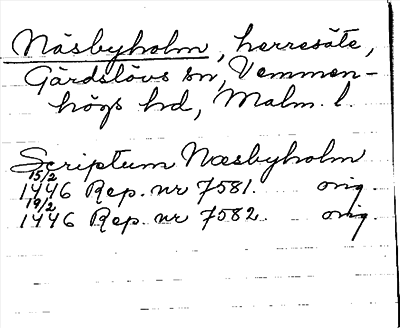 Näsbyholm, herresäte,
Gärdslövs sn, Vemmen-
högs hd, Malm. l.
Scriptum Næsbyholm
15/2
1446 Rep. nr 7581. orig.
19/2
1446 Rep. nr 7582 orig.